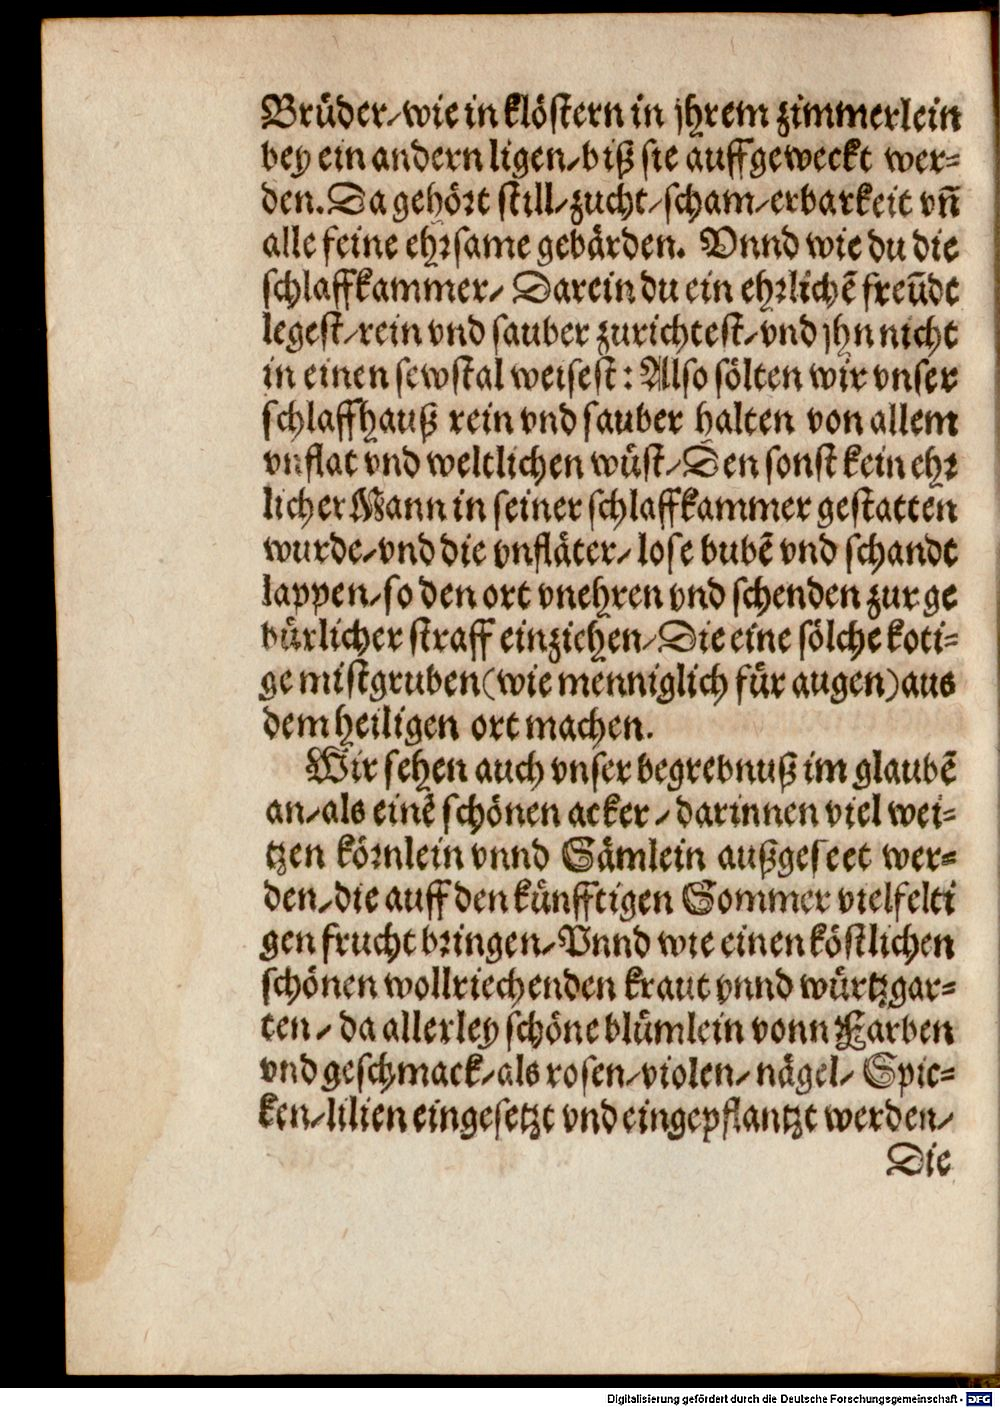 Brüder/wie in klöstern in jhrem zimmerlein
bey ein andern ligen/biß sie auffgeweckt wer=
den. Da gehört still/zucht/scham/erbarkeit vñ
alle feine ehrsame gebärden. Vnnd wie du die
schlaffkammer/ Darein du ein ehrlichẽ freũdt
legest/rein vnd sauber zurichtest/vnd jhn nicht
in einen sewstal weisest: Also sölten wir vnser
schlaffhauß rein vnd sauber halten von allem
vnflat vnd weltlichen wüst/Den sonst kein ehr
licher Mann in seiner schlaffkammer gestatten
wurde/vnd die vnfläter/ lose bubẽ vnd schandt
lappen/so den ort vnehren vnd schenden zur ge
bürlicher straff einziehen/Die eine sölche koti=
ge mistgruben(wie menniglich für augen)aus
dem heiligen ort machen.
Wir sehen auch vnser begrebnuß im glaubẽ
an/als einẽ schönen acker/ darinnen viel wei=
tzen körnlein vnnd Sämlein außgeseet wer=
den/die auff den künfftigen Sommer vielfelti
gen frucht bringen/Vnnd wie einen köstlichen
schönen wollriechenden kraut vnnd würtzgar=
ten/ da allerley schöne blümlein vonn Farben
vnd geschmack/als rosen/violen/ nägel/ Spic=
ken/lilien eingesetzt vnd eingepflantzt werden/
Die
Digitalisierung gefördert durch die Deutsche Forschungsgemeinschaft - DFG